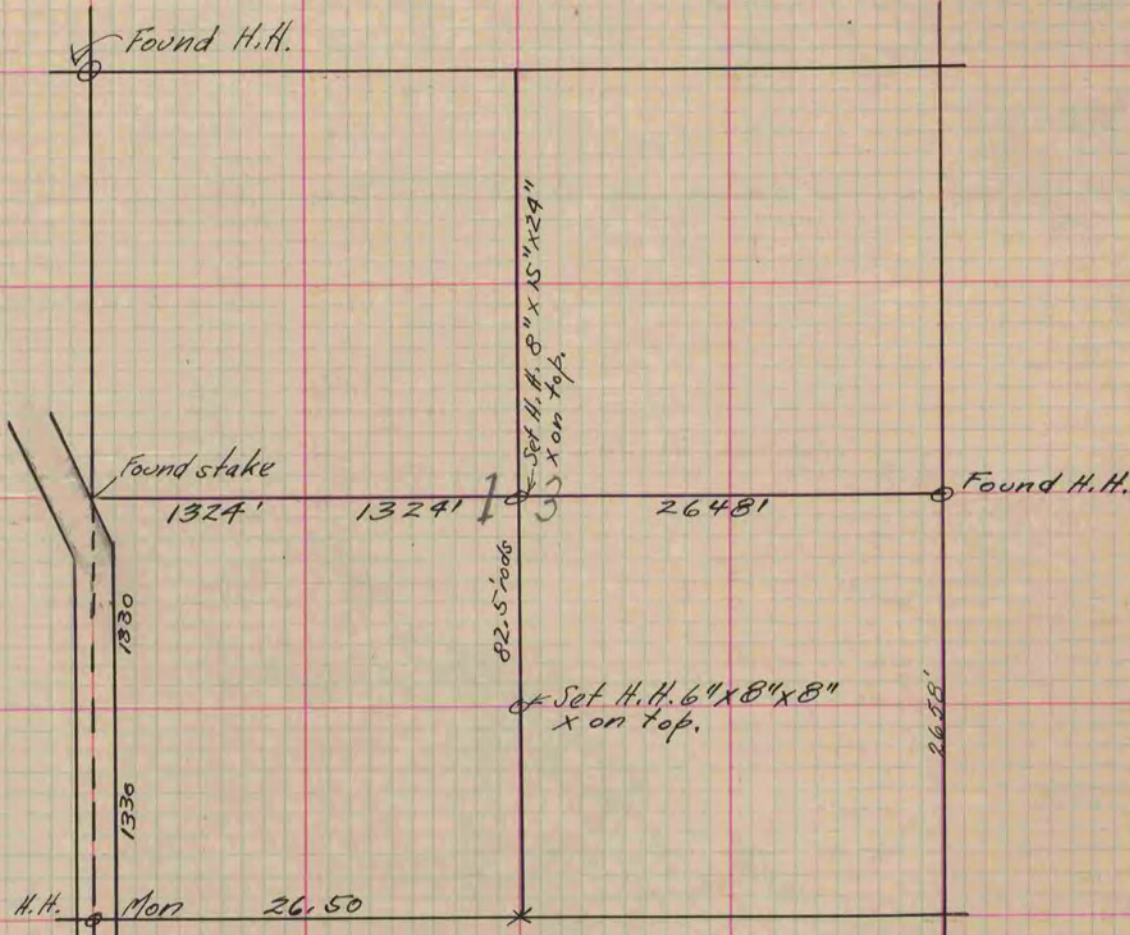 Found H.H.
Set H.H. 8" x 15" x 24"
x on top.
Found stake
1324'
1324'
13
2648'
Found H.H.
82.5 rods
1330
Set H.H. 6" x 8" x 8"
x on top.
2658'
1330
H.H. Mon 26.50